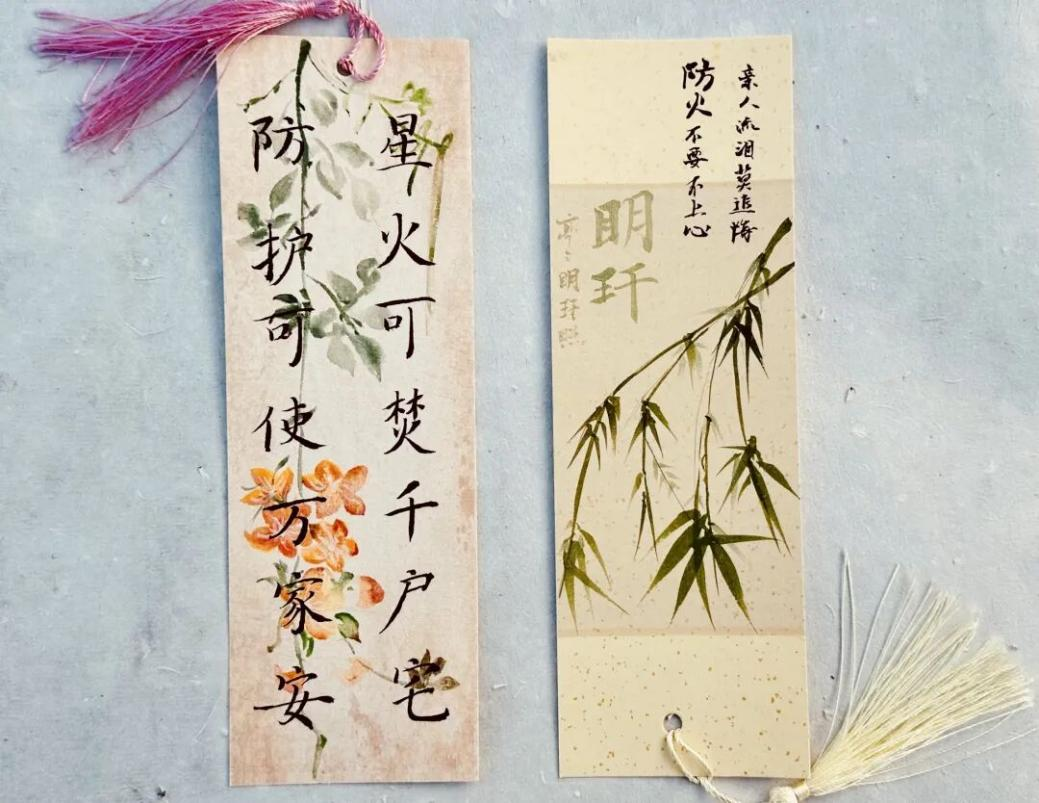 星火可焚千户宅
防护可使万家安
亲人流泪莫追悔
防火不要不上心
明玕
亭〻明玕照